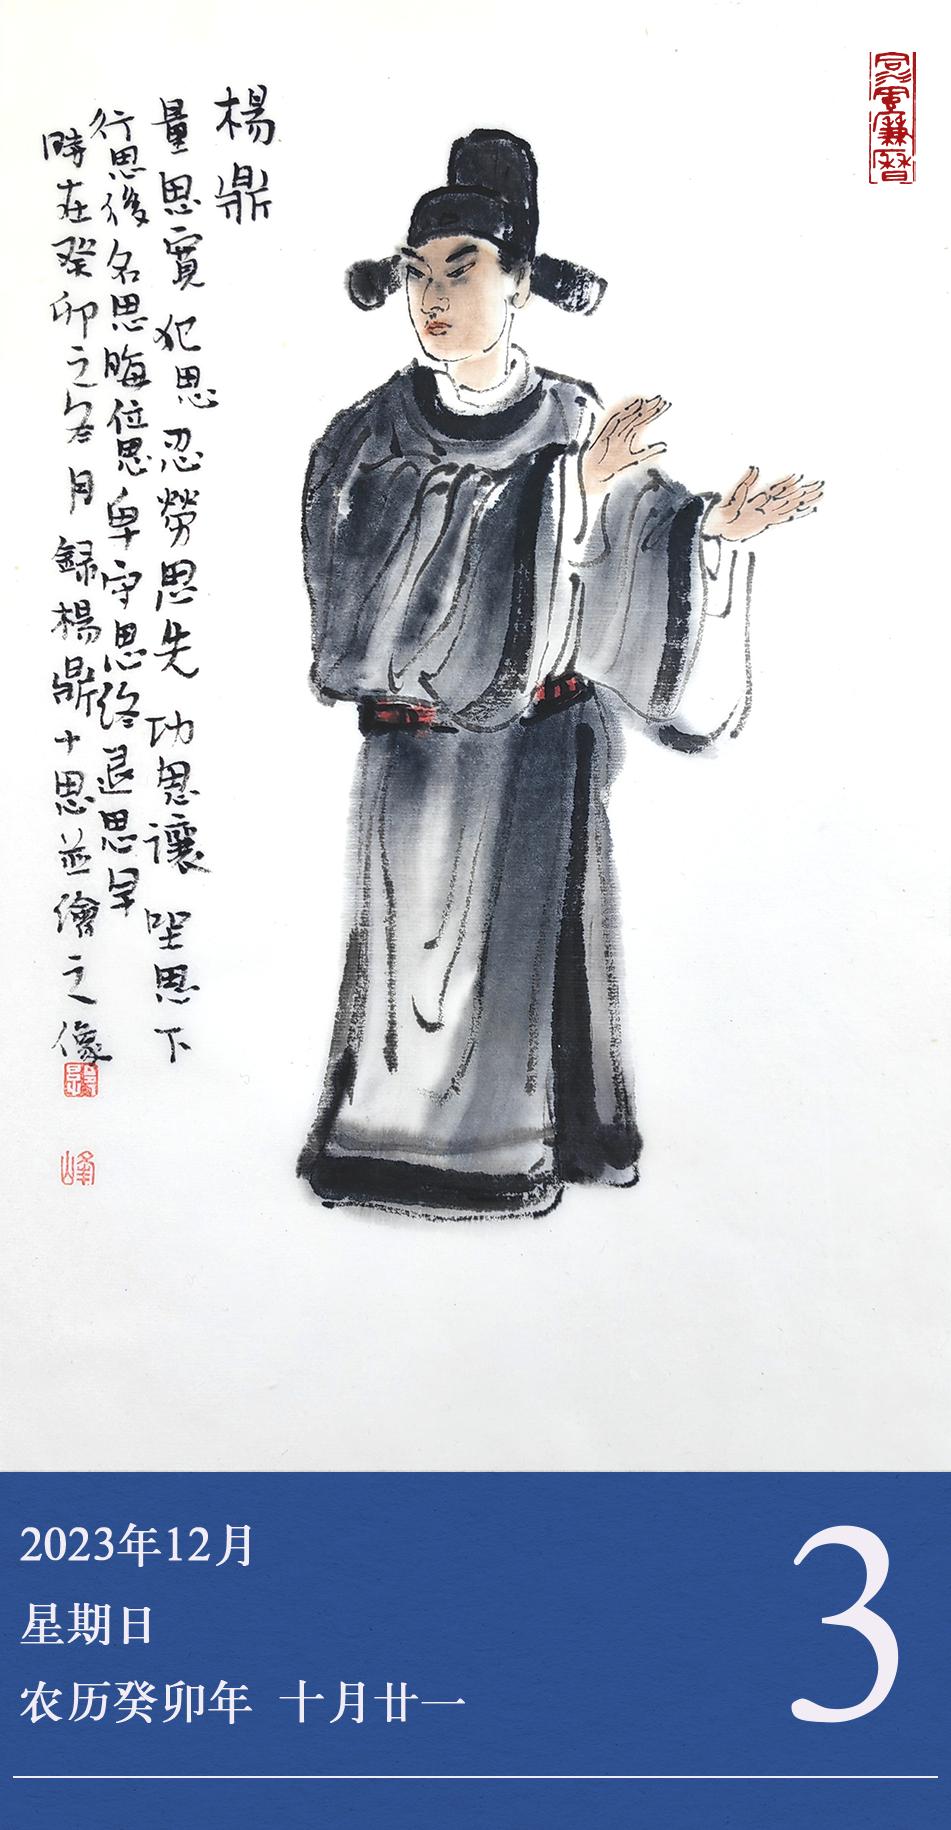 楊鼎
量思寬 犯思忍勞思先 功思讓 坐思下
行思後名思晦位思卑守思終退思早
時在癸卯之冬月録楊鼎十思並繪之像
峰
2023年12月
星期日
农历癸卯年 十月廿一
3